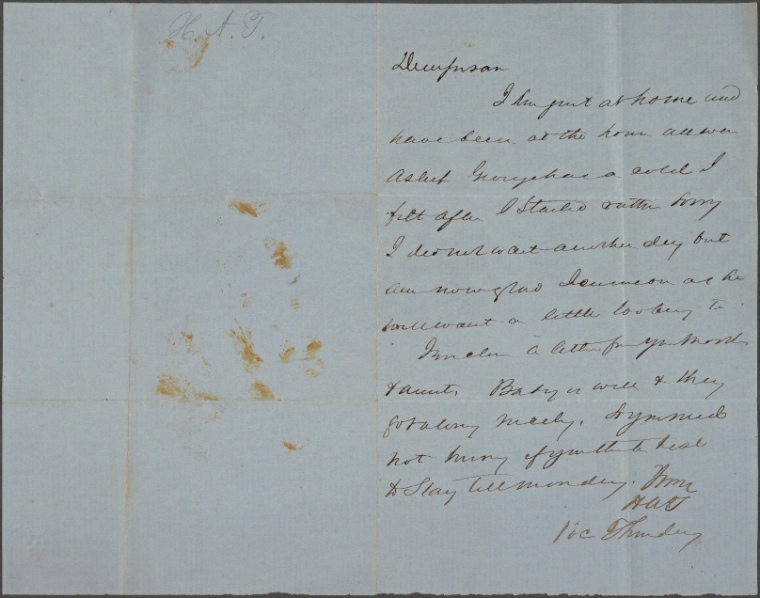 H. A. T.
I am just at home and
have been at the
asleep George has a cold I
felt after I started rather sorry
I did not wait another day but
am now glad I came on as he
will want a little looking to
a letter for you
& aunt. Baby is well & they
got along nicely. So you need
not hurry if you think best
to stay till monday. From
HAT
1 oc Thursday